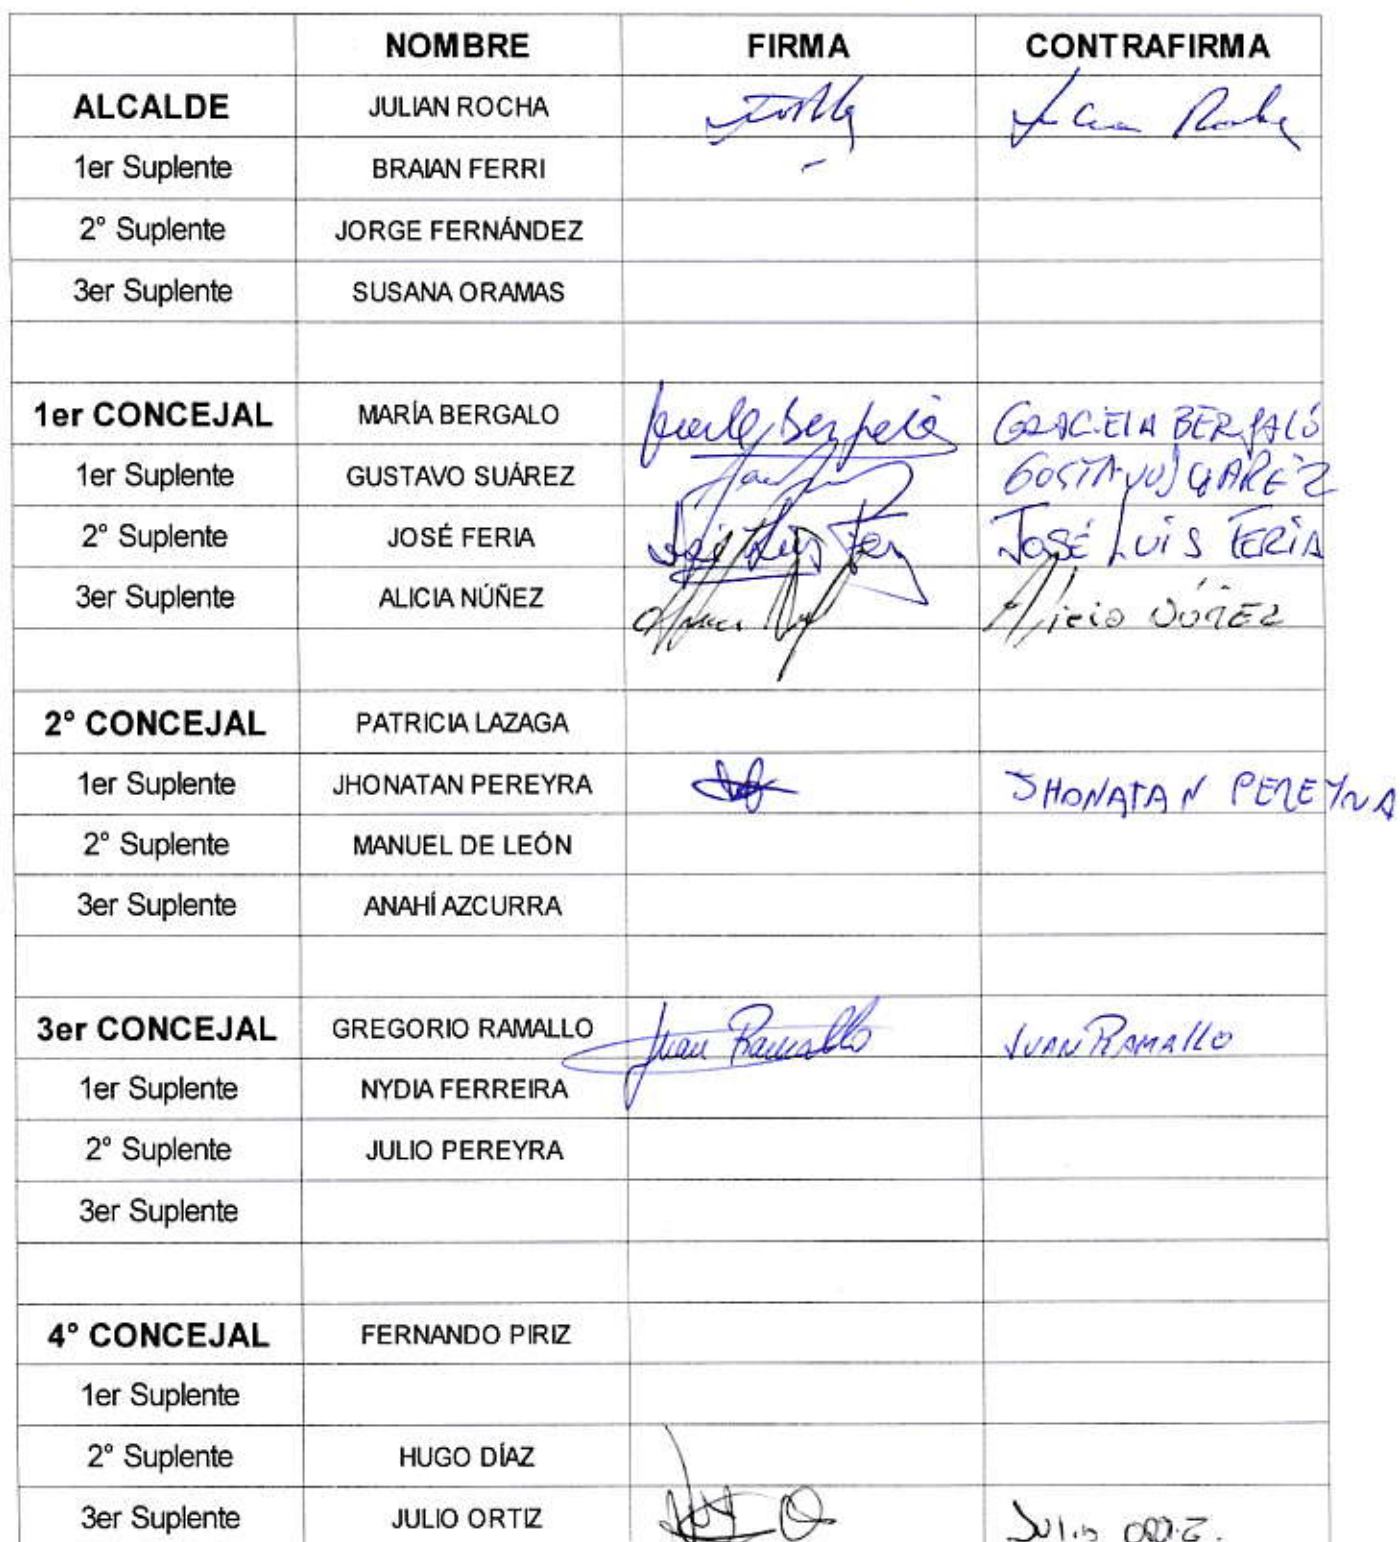 NOMBRE FIRMA CONTRAFIRMA
ALCALDE JULIAN ROCHA
1er Suplente BRAIAN FERRI
2° Suplente JORGE FERNÁNDEZ
3er Suplente SUSANA ORAMAS
1er CONCEJAL MARÍA BERGALO GRACIELA BERGALÓ
1er Suplente GUSTAVO SUÁREZ GUSTAVO SUAREZ
2° Suplente JOSÉ FERIA José Luis Fer JOSÉ LUIS FERIA
3er Suplente ALICIA NÚÑEZ Alicia NÚÑEZ
2° CONCEJAL PATRICIA LAZAGA
1er Suplente JHONATAN PEREYRA JHONATAN PEREYRA
2° Suplente MANUEL DE LEÓN
3er Suplente ANAHÍ AZCURRA
3er CONCEJAL GREGORIO RAMALLO Juan Ramallo JUAN RAMALLO
1er Suplente NYDIA FERREIRA
2° Suplente JULIO PEREYRA
3er Suplente
4° CONCEJAL FERNANDO PIRIZ
1er Suplente
2° Suplente HUGO DÍAZ
3er Suplente JULIO ORTIZ JULIO ORTIZ.